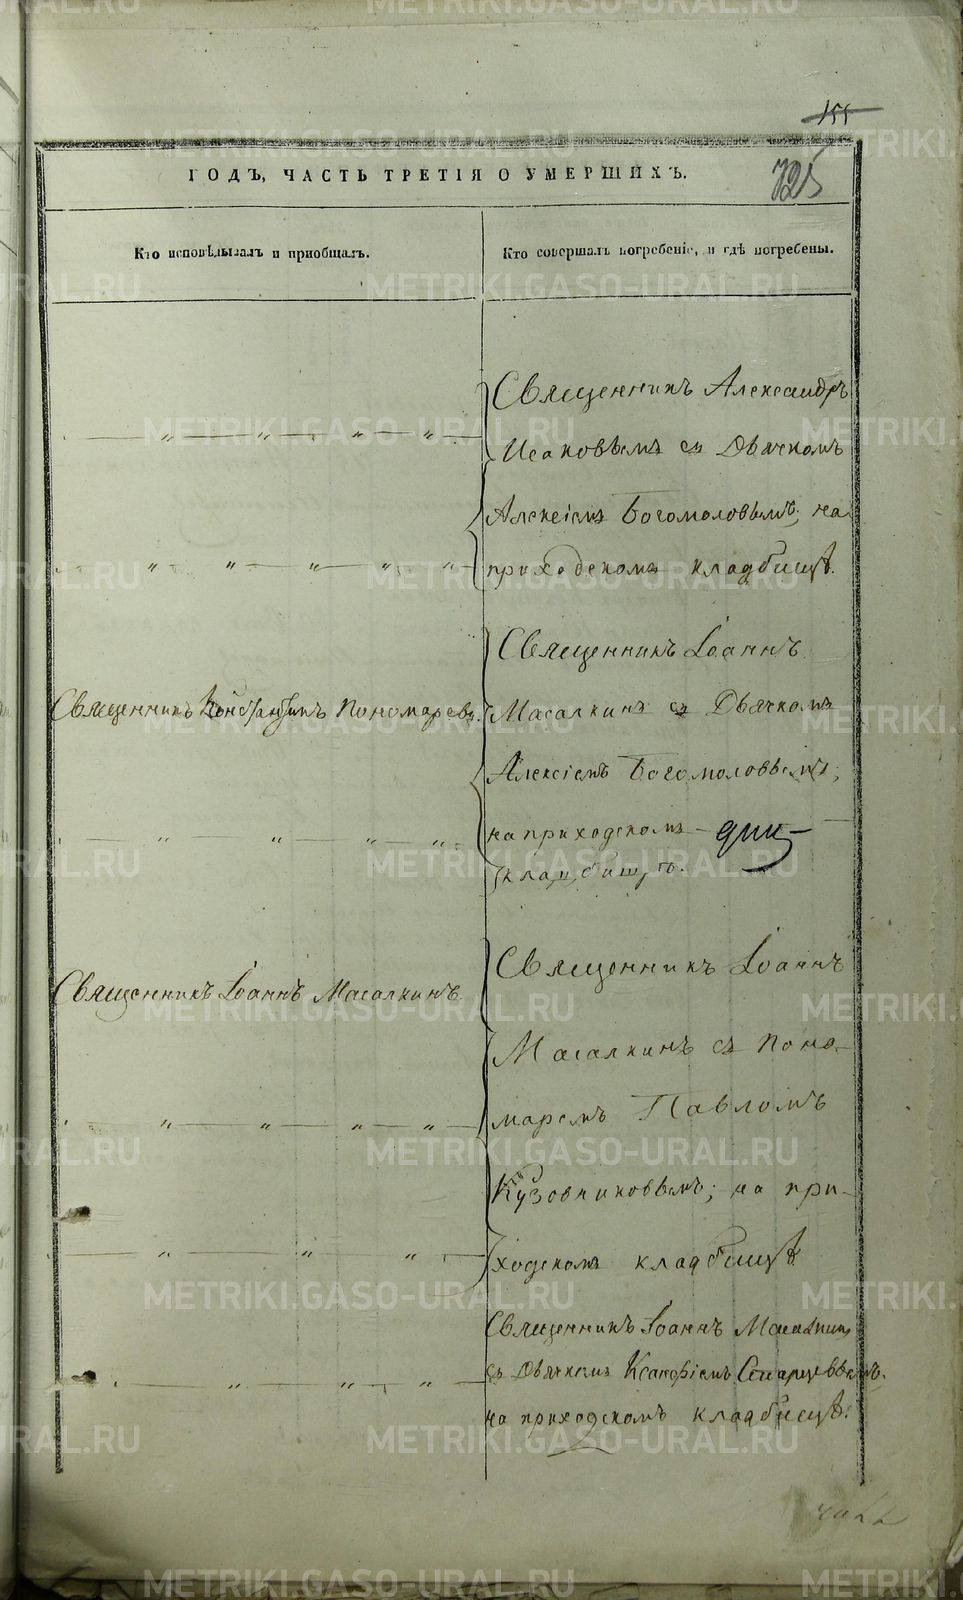 155
725
ГОДЪ, ЧАСТЬ ТРЕТІЯ О УМЕРШИХЪ.
Кто исповѣдывалъ и приобщалъ.
Кто совершалъ погребеніе, и гдѣ погребены.
Священникъ Александръ
Исаковымъ съ Дьячкомъ
Алексіемъ Богомоловымъ; на
приходскомъ кладбищѣ.
Священникъ Константинъ Пономаревъ.
Священникъ Іоаннъ
Масалкинъ съ Дьячкомъ
Алексіемъ Богомоловымъ;
на приходскомъ
кладбищѣ.
Священникъ Іоаннъ Масалкинъ.
Священникъ Іоаннъ
Масалкинъ съ Поно-
маремъ Павломъ
Кузовниковымъ; на при-
ходскомъ кладбищѣ.
Священникъ Іоаннъ Масалкинъ
съ Дьячкомъ Ксанфіемъ Старцевымъ.
на приходскомъ кладбищѣ.
METRIKI.GASO-URAL.RU